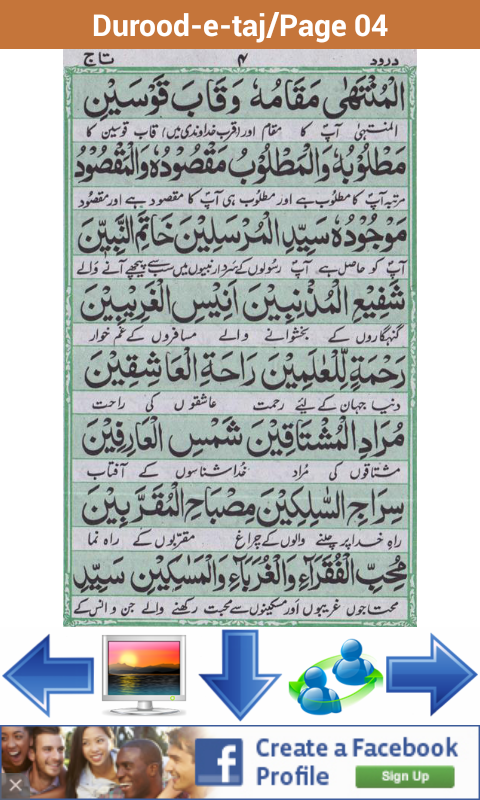 Durood-e-taj/Page 04
درود ۴ تاج
الْمُنْتَهٰى مَقَامُهٗ وَقَابَ قَوْسَيْنِ
المنتہیٰ آپؐ کا مقام اور (قرب خداوندی میں) قاب قوسین کا
مَطْلُوْبُهٗ وَالْمَطْلُوْبُ مَقْصُوْدُهٗ وَالْمَقْصُوْدُ
مرتبہ آپؐ کا مطلوب ہے اور مطلوب ہی آپؐ کا مقصود ہے اور مقصود
مَوْجُوْدُهٗ سَيِّدِ الْمُرْسَلِيْنَ خَاتِمِ النَّبِيّٖنَ
آپؐ کو حاصل ہے۔ آپؐ رسولوں کے سردار نبیوں میں سب سے پیچھے آنے والے
شَفِيْعِ الْمُذْنِبِيْنَ اَنِيْسِ الْغَرِيْبِيْنَ
گنہگاروں کے بخشوانے والے مسافروں کے غم خوار
رَحْمَةٍ لِّلْعٰلَمِيْنَ رَاحَةِ الْعَاشِقِيْنَ
دنیا جہان کے لئے رحمت عاشقوں کی راحت
مُرَادِ الْمُشْتَاقِيْنَ شَمْسِ الْعَارِفِيْنَ
مشتاقوں کی مُراد خُدا شناسوں کے آفتاب
سِرَاجِ السَّالِكِيْنَ مِصْبَاحِ الْمُقَرَّبِيْنَ
راہِ خدا پر چلنے والوں کے چراغ مقرّبوں کے راہ نما
مُحِبِّ الْفُقَرَآءِ وَالْغُرَبَآءِ وَالْمَسٰكِيْنِ سَيِّدِ
محتاجوں غریبوں اور مسکینوں سے محبت رکھنے والے جن و انس کے
Create a Facebook
Profile
Sign Up
f